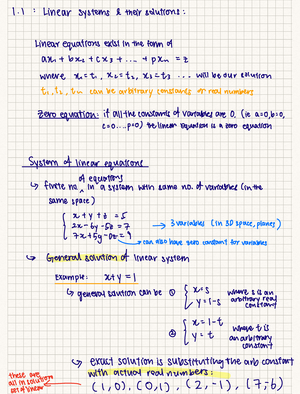 1.1 : Linear systems & their solutions:
Linear equations exist in the form of
ax₁ + bx₂ + cx₃ + ... + pxₘ = z
where x₁=t₁, x₂=t₂, x₃=t₃ ... will be our solution
t₁, t₂, tₘ can be arbitrary constants or real numbers
zero equation: if all the constants of variables are 0. (ie a=0, b=0,
c=0....p=0) the linear equation is a zero equation
System of linear equations
of equations
↳ finite no. ^ in a system with same no. of variables (in the
same space)
x+y+z=5
2x-6y-5z=7
7x+5y-0z=9
→ 3 variables (in 3D space, planes)
→ can also have zero constant for variables
↳ General solution of linear system
Example: x+y=1
↳ general solution can be ① x=s
y=1-s
where s is an
arbitrary real
constant
② x=1-t
y=t
where t is
an arbitrary
constant
↳ exact solution is substituting the arb constant
with actual real numbers:
these are
all in solution
set of linear
(1,0), (0,1), (2,-1), (7,-6)